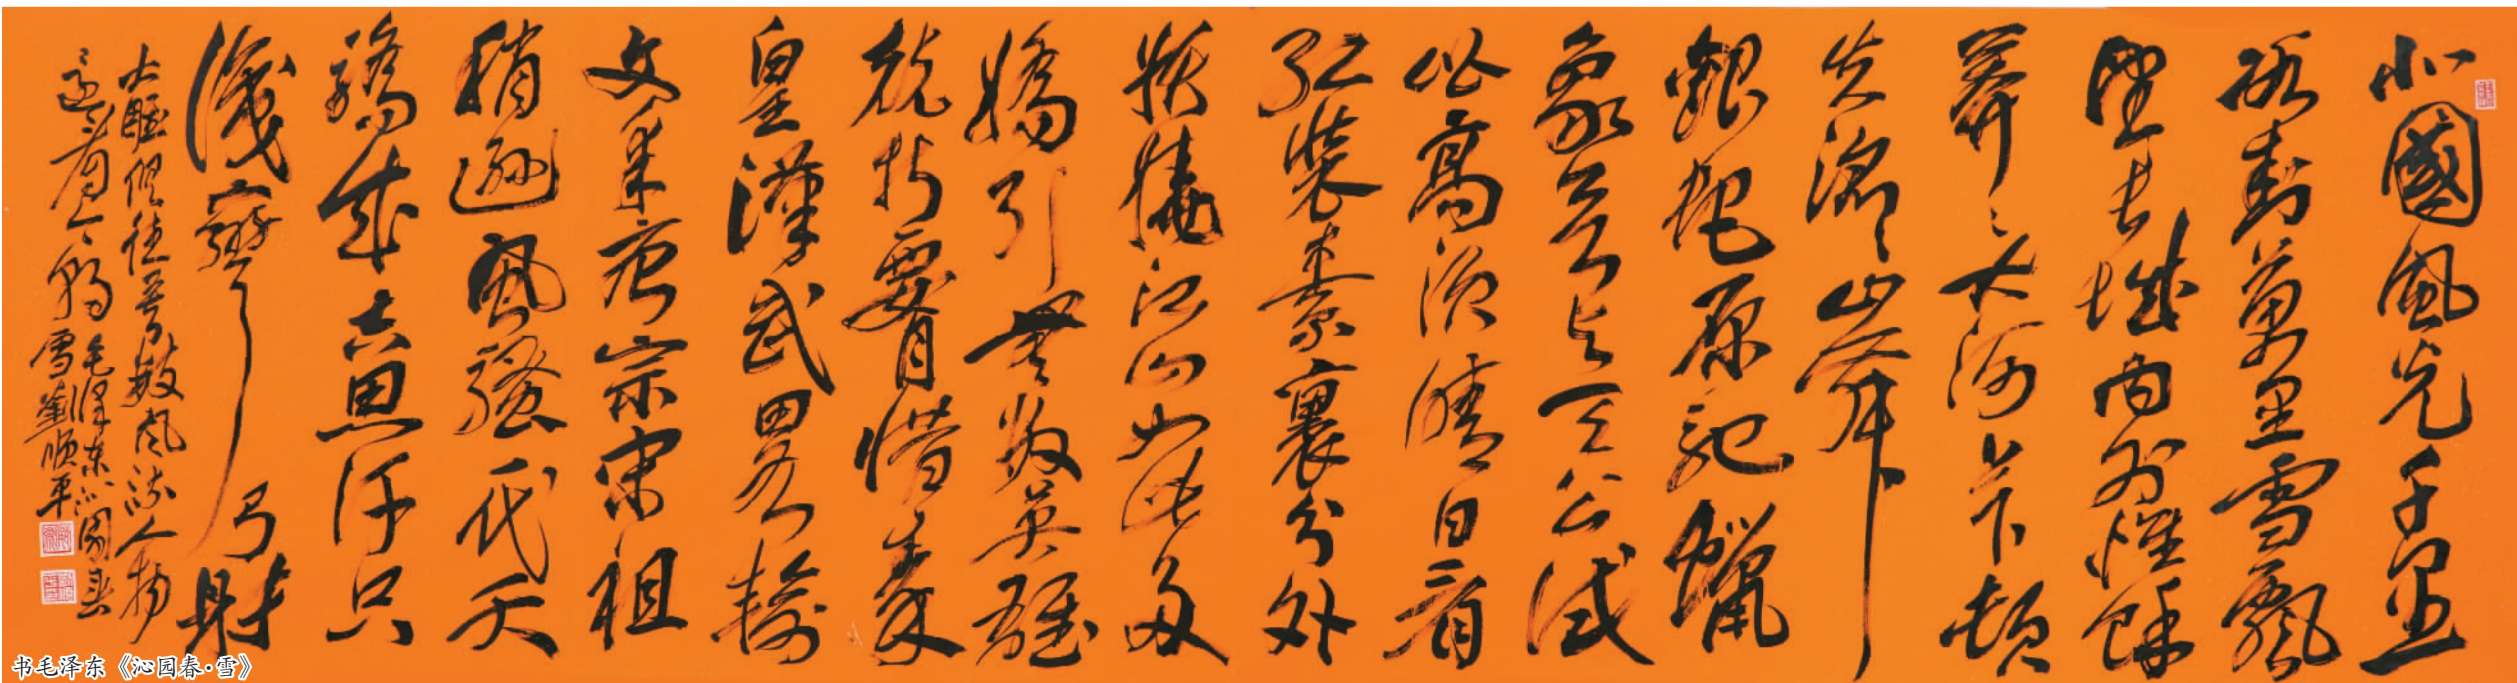 北國風光千里
冰封萬里雪飄
望長城內外惟餘
莽莽大河上下頓
失滔滔山舞
銀蛇原馳蠟
象欲與天公試
比高須晴日看
紅裝素裹分外
妖嬈江山如此多
嬌引無數英雄
競折腰惜秦
皇漢武略輸
文采唐宗宋祖
稍遜風騷代天
驕成吉思汗只
識彎弓射
大雕俱往矣數風流人物
還看今朝
毛澤东沁園春
雪劉順平
书毛泽东《沁园春·雪》